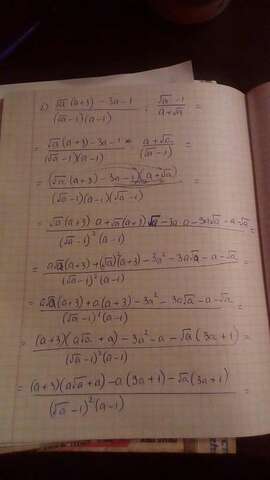 2) (√a(a+3) - 3a - 1)/((√a-1)(a-1)) : (√a-1)/(a+√a) =
= (√a(a+3) - 3a - 1)/((√a-1)(a-1)) * (a+√a)/(√a-1) =
= ((√a(a+3) - 3a - 1)(a+√a))/((√a-1)(a-1)(√a-1)) =
= (√a(a+3) a + √a(a+3) √a - 3a a - 3a√a - a - √a)/((√a-1)²(a-1)) =
= (a√a(a+3) + (√a)²(a+3) - 3a² - 3a√a - a - √a)/((√a-1)²(a-1)) =
= (a√a(a+3) + a(a+3) - 3a² - 3a√a - a - √a)/((√a-1)²(a-1)) =
= ((a+3)(a√a + a) - 3a² - a - √a(3a+1))/((√a-1)²(a-1)) =
= ((a+3)(a√a + a) - a(3a+1) - √a(3a+1))/((√a-1)²(a-1)) =